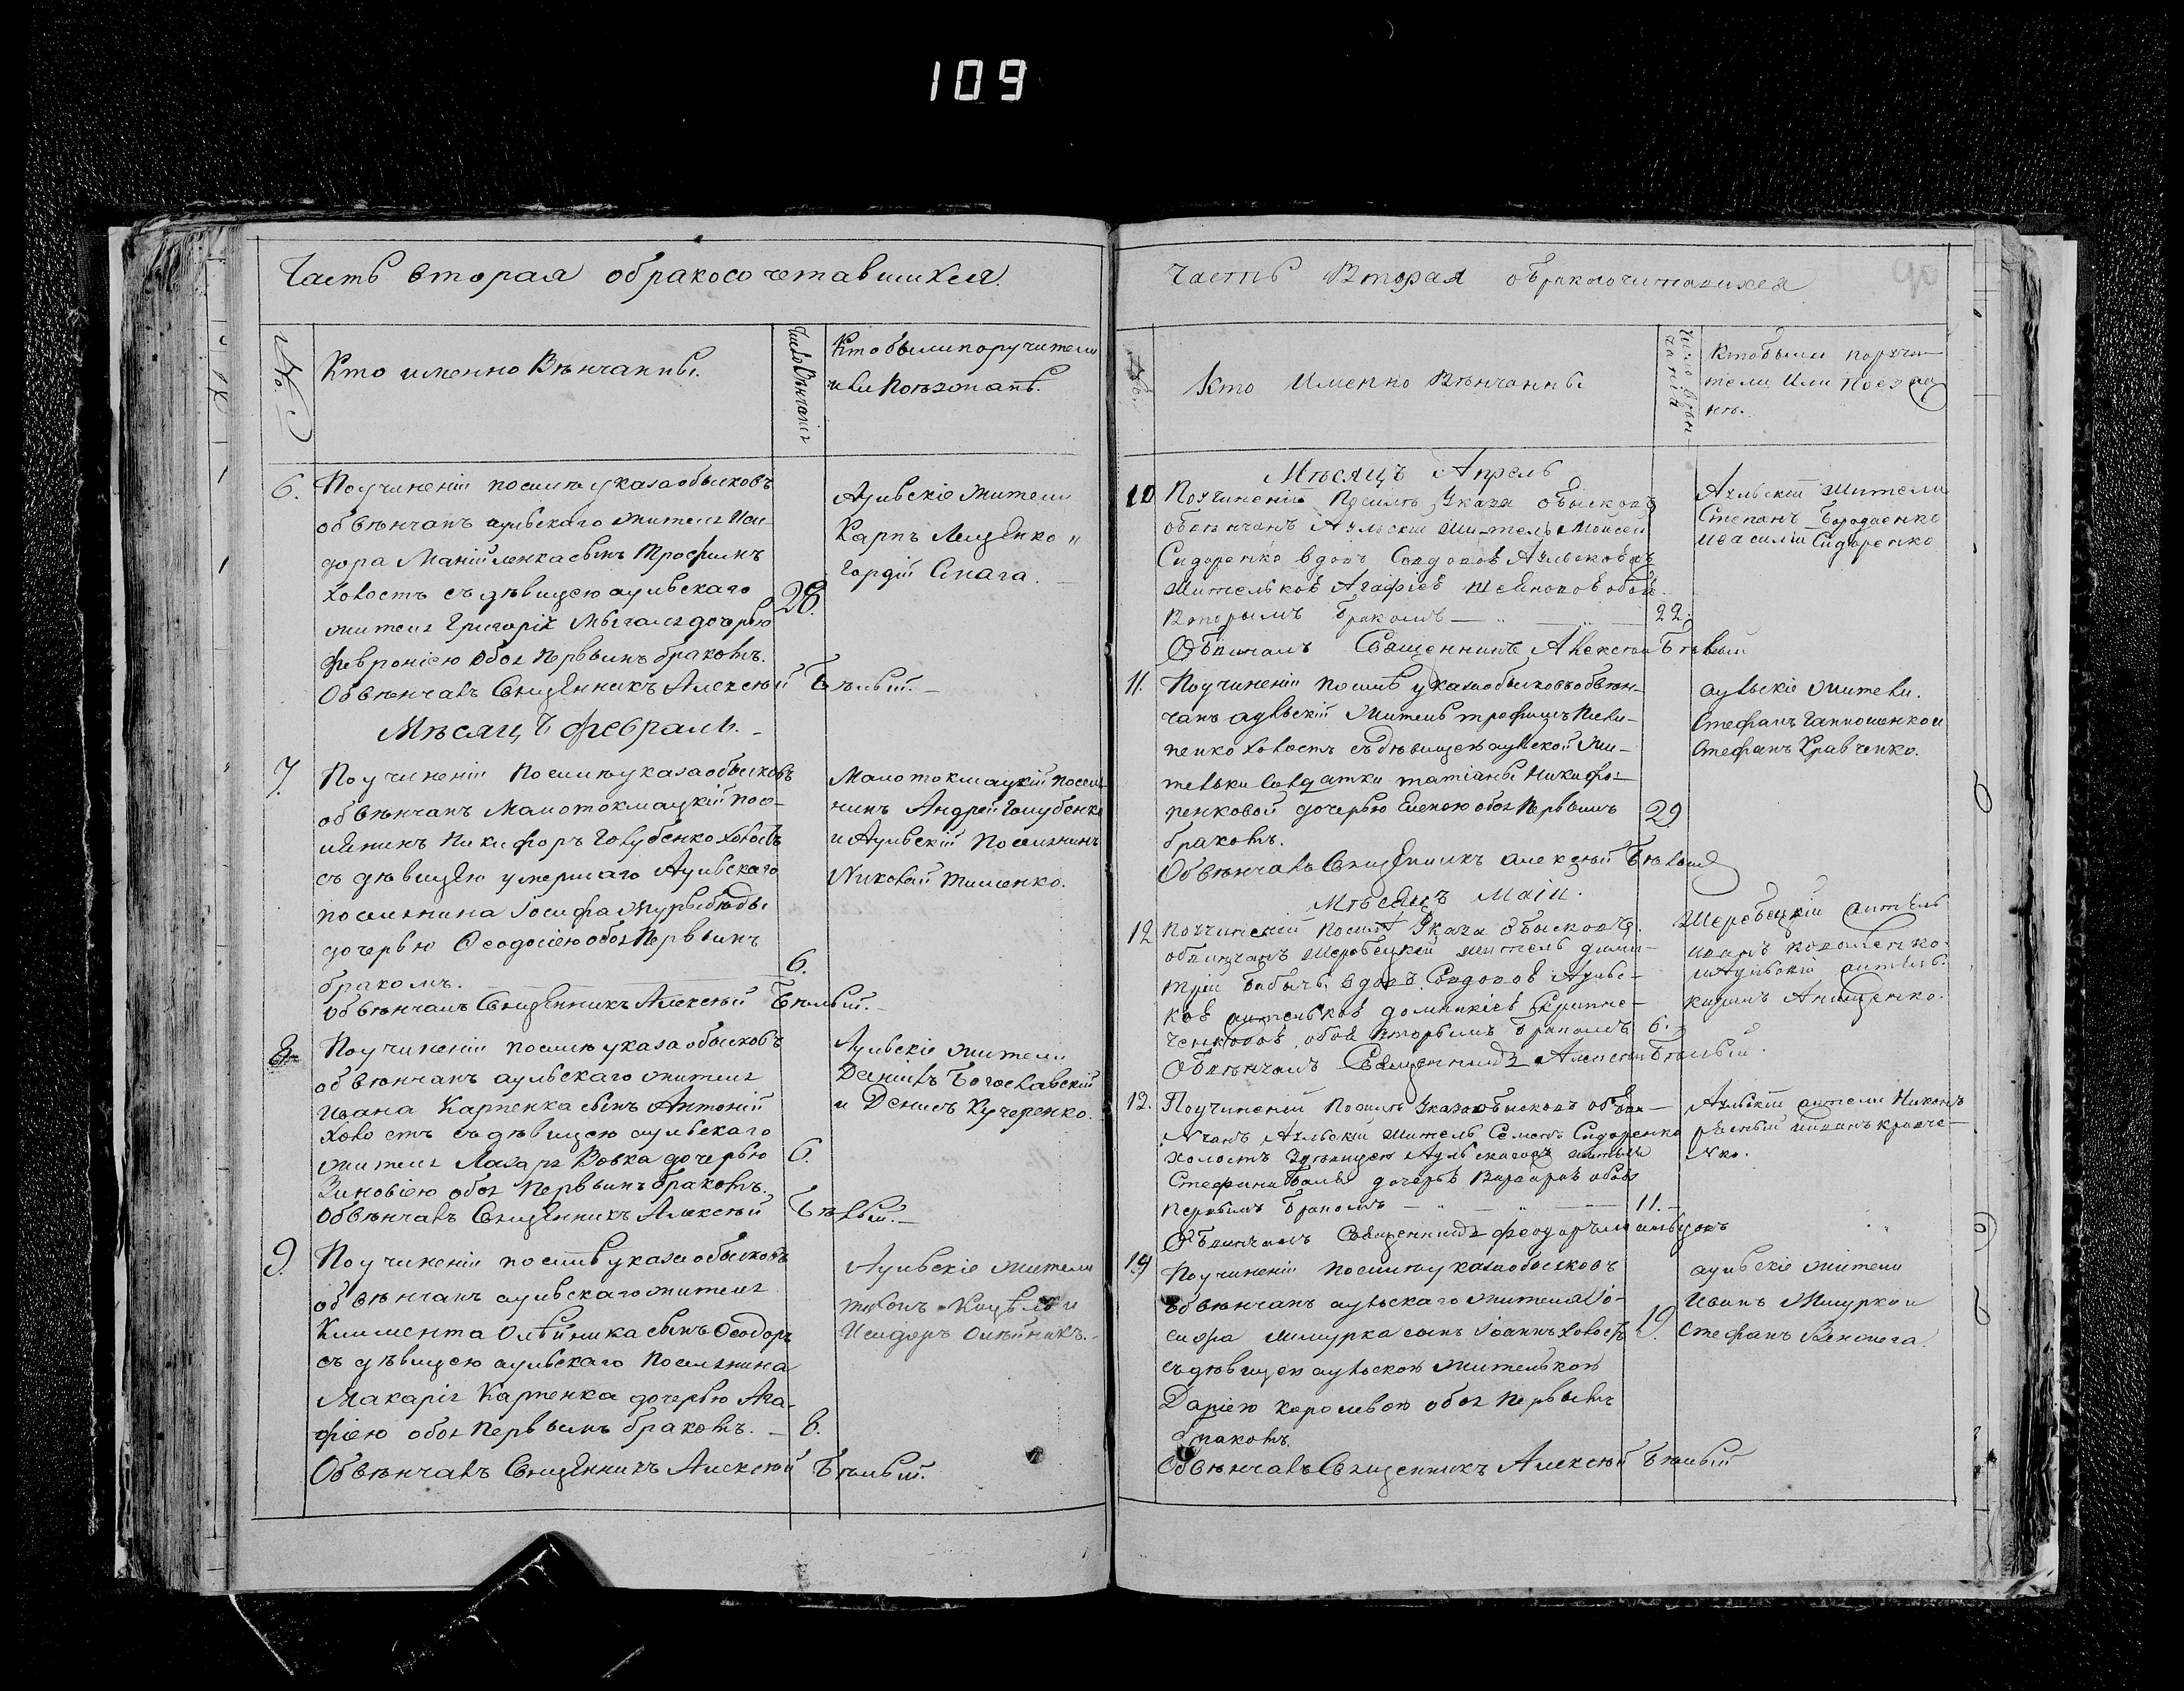 109
Часть вторая обракосочетавшихся.
№.
Кто именно Вѣнчанны.
Число Вѣнчанія
Кто были поручители
или Поѣзжанѣ.
6.
По учиненіи посилѣ указа обысковъ
обвѣнчанъ аульскаго жителя Иси-
дора Манійленка сынъ Трофимъ
холостъ съ дѣвицею аульскаго
жителя Григорія дочерью
Февроніею обоя первымъ бракомъ.
28.
Обвѣнчалъ Священникъ Алексѣй Бѣлый.
Аульскіе жители
Карпъ Лещенко и
Гордій Снага.
Мѣсяцъ февраль.
7.
По учиненіи посилѣ указа обысковъ
обвѣнчанъ Малотокмацкій посе-
лянинъ Никифоръ Голубенко холостъ
съ дѣвицею умершаго Аульскаго
поселянина Іосифа дочерью
Ѳеодосіею обоя первымъ
бракомъ.
6.
обвѣнчалъ Священникъ Алексѣй Бѣлый.
Малотокмацкій поселя-
нинъ Андрей Голубенко
и Аульскій Поселянинъ
Николай Тименко.
8.
По учиненіи посилѣ указа обысковъ
обвѣнчанъ аульскаго жителя
Ивана Карпенка сынъ Антоній
холостъ съ дѣвицею аульскаго
жителя Лазаря Вовка дочерью
Зиновіею обоя первымъ бракомъ.
6.
Обвѣнчалъ Священникъ Алексѣй Бѣлый.
Аульскіе жители
Данилъ Богославскій
и Денисъ Кучеренко.
9.
По учиненіи посилѣ указа обысковъ
обвѣнчанъ аульскаго жителя
Климента Олѣйника сынъ Ѳеодоръ
съ дѣвицею аульскаго Поселянина
Макарія Карпенка дочерью Ага-
фіею обоя первымъ бракомъ.
8.
Обвѣнчалъ Священникъ Алексѣй Бѣлый.
Аульскіе жители
и
Исидоръ Олѣйникъ.
Часть Вторая обракосочитавихся
90
Кто Именно Вѣнчанны
Число вѣн
чанія
Кто были поручи-
тели Или Поезжа
нѣ.
Мѣсяцъ Апрель
10
По учиненіи Посилѣ Указа обысковъ
обвѣнчанъ Аульскій Житель Моисей
Сидоренко вдовъ Аульсковъ
Жительков Агафіев обов
Вторымъ Бракомъ
22.
Обвінчалъ Священникъ Алексѣй Бѣлый
Аульскій Жители
Степанъ Бородаенко
и Василій Сидоренко
11.
По учиненіи посилѣ указа обысковъ обвѣн-
чанъ аульскій Житель Трофимъ Пили-
пенко холостъ съ дѣвицею аульской жи-
тельки солдатки Татіаны Никифо-
ренковой дочерью Еленою обоя первымъ
бракомъ.
29
Обвѣнчалъ Священникъ Алексѣй Бѣлый
аульскіе жители.
Стефанъ Гаппошенко и
Стефанъ Кравченко.
Мѣсяцъ Маіи.
12
По учиненіи Посилѣ Указа обысковъ
обвінчанъ Шеребецкій житель Дими-
трій Бабычъ вдовъ Аульс-
ков жительков Домникіев
обов вторымъ Бракомъ
6.
Обвѣнчалъ Священникъ Алексѣй Бѣлый.
Шеребецкій житель
иванъ коваленко
и Аульскій житель
Анищенко.
12.
По учиненіи Посилѣ Указа обысковъ обвѣн-
чанъ Аульскій Житель Семенъ Сидоренко
холостъ дѣвицею Аульскагов жителя
Стефана дочерѣ Варварѣ обов
первымъ Бракомъ
11.
Обвінчалъ Священникъ Феодоръ
Аульскій жители Никонъ
и иванъ кравче-
нко.
14
По учиненіи посилѣ указа обысковъ
обвѣнчанъ аульскаго жителя Іо-
сифа Мишурка сынъ Іоаннъ холостъ
съ дѣвицею аульскою жителькою
Даріею Королевою обоя первымъ
бракомъ.
19.
Обвѣнчалъ Священникъ Алексѣй Бѣлый
аульскіе жители
Иванъ Мишурко и
Стефанъ